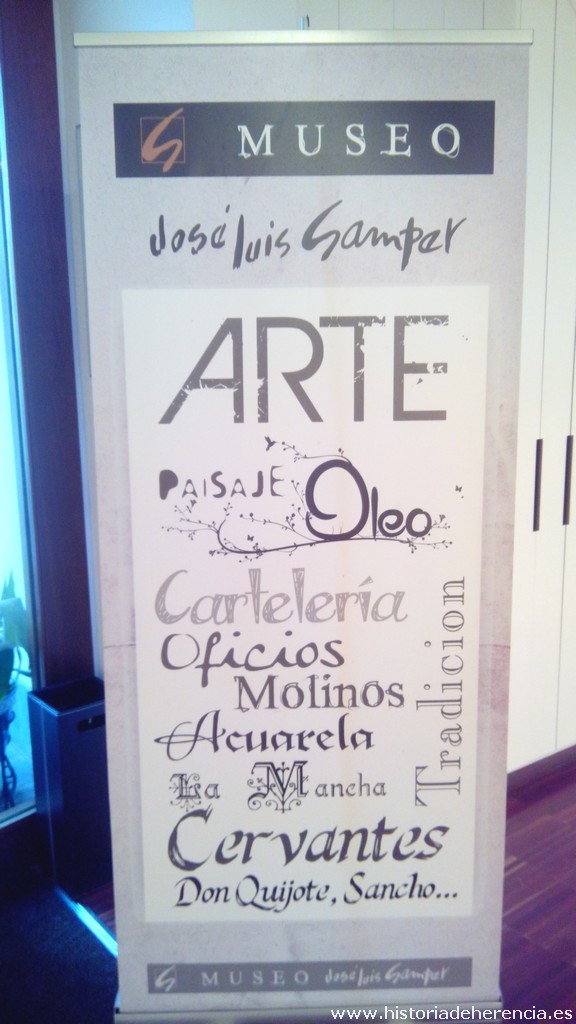 MUSEO
José Luis Samper
ARTE
PAISAJE Oleo
Cartelería
Oficios
Molinos
Acuarela
La Mancha
Tradicion
Cervantes
Don Quijote, Sancho...
MUSEO José Luis Samper
www.historiadeherencia.es